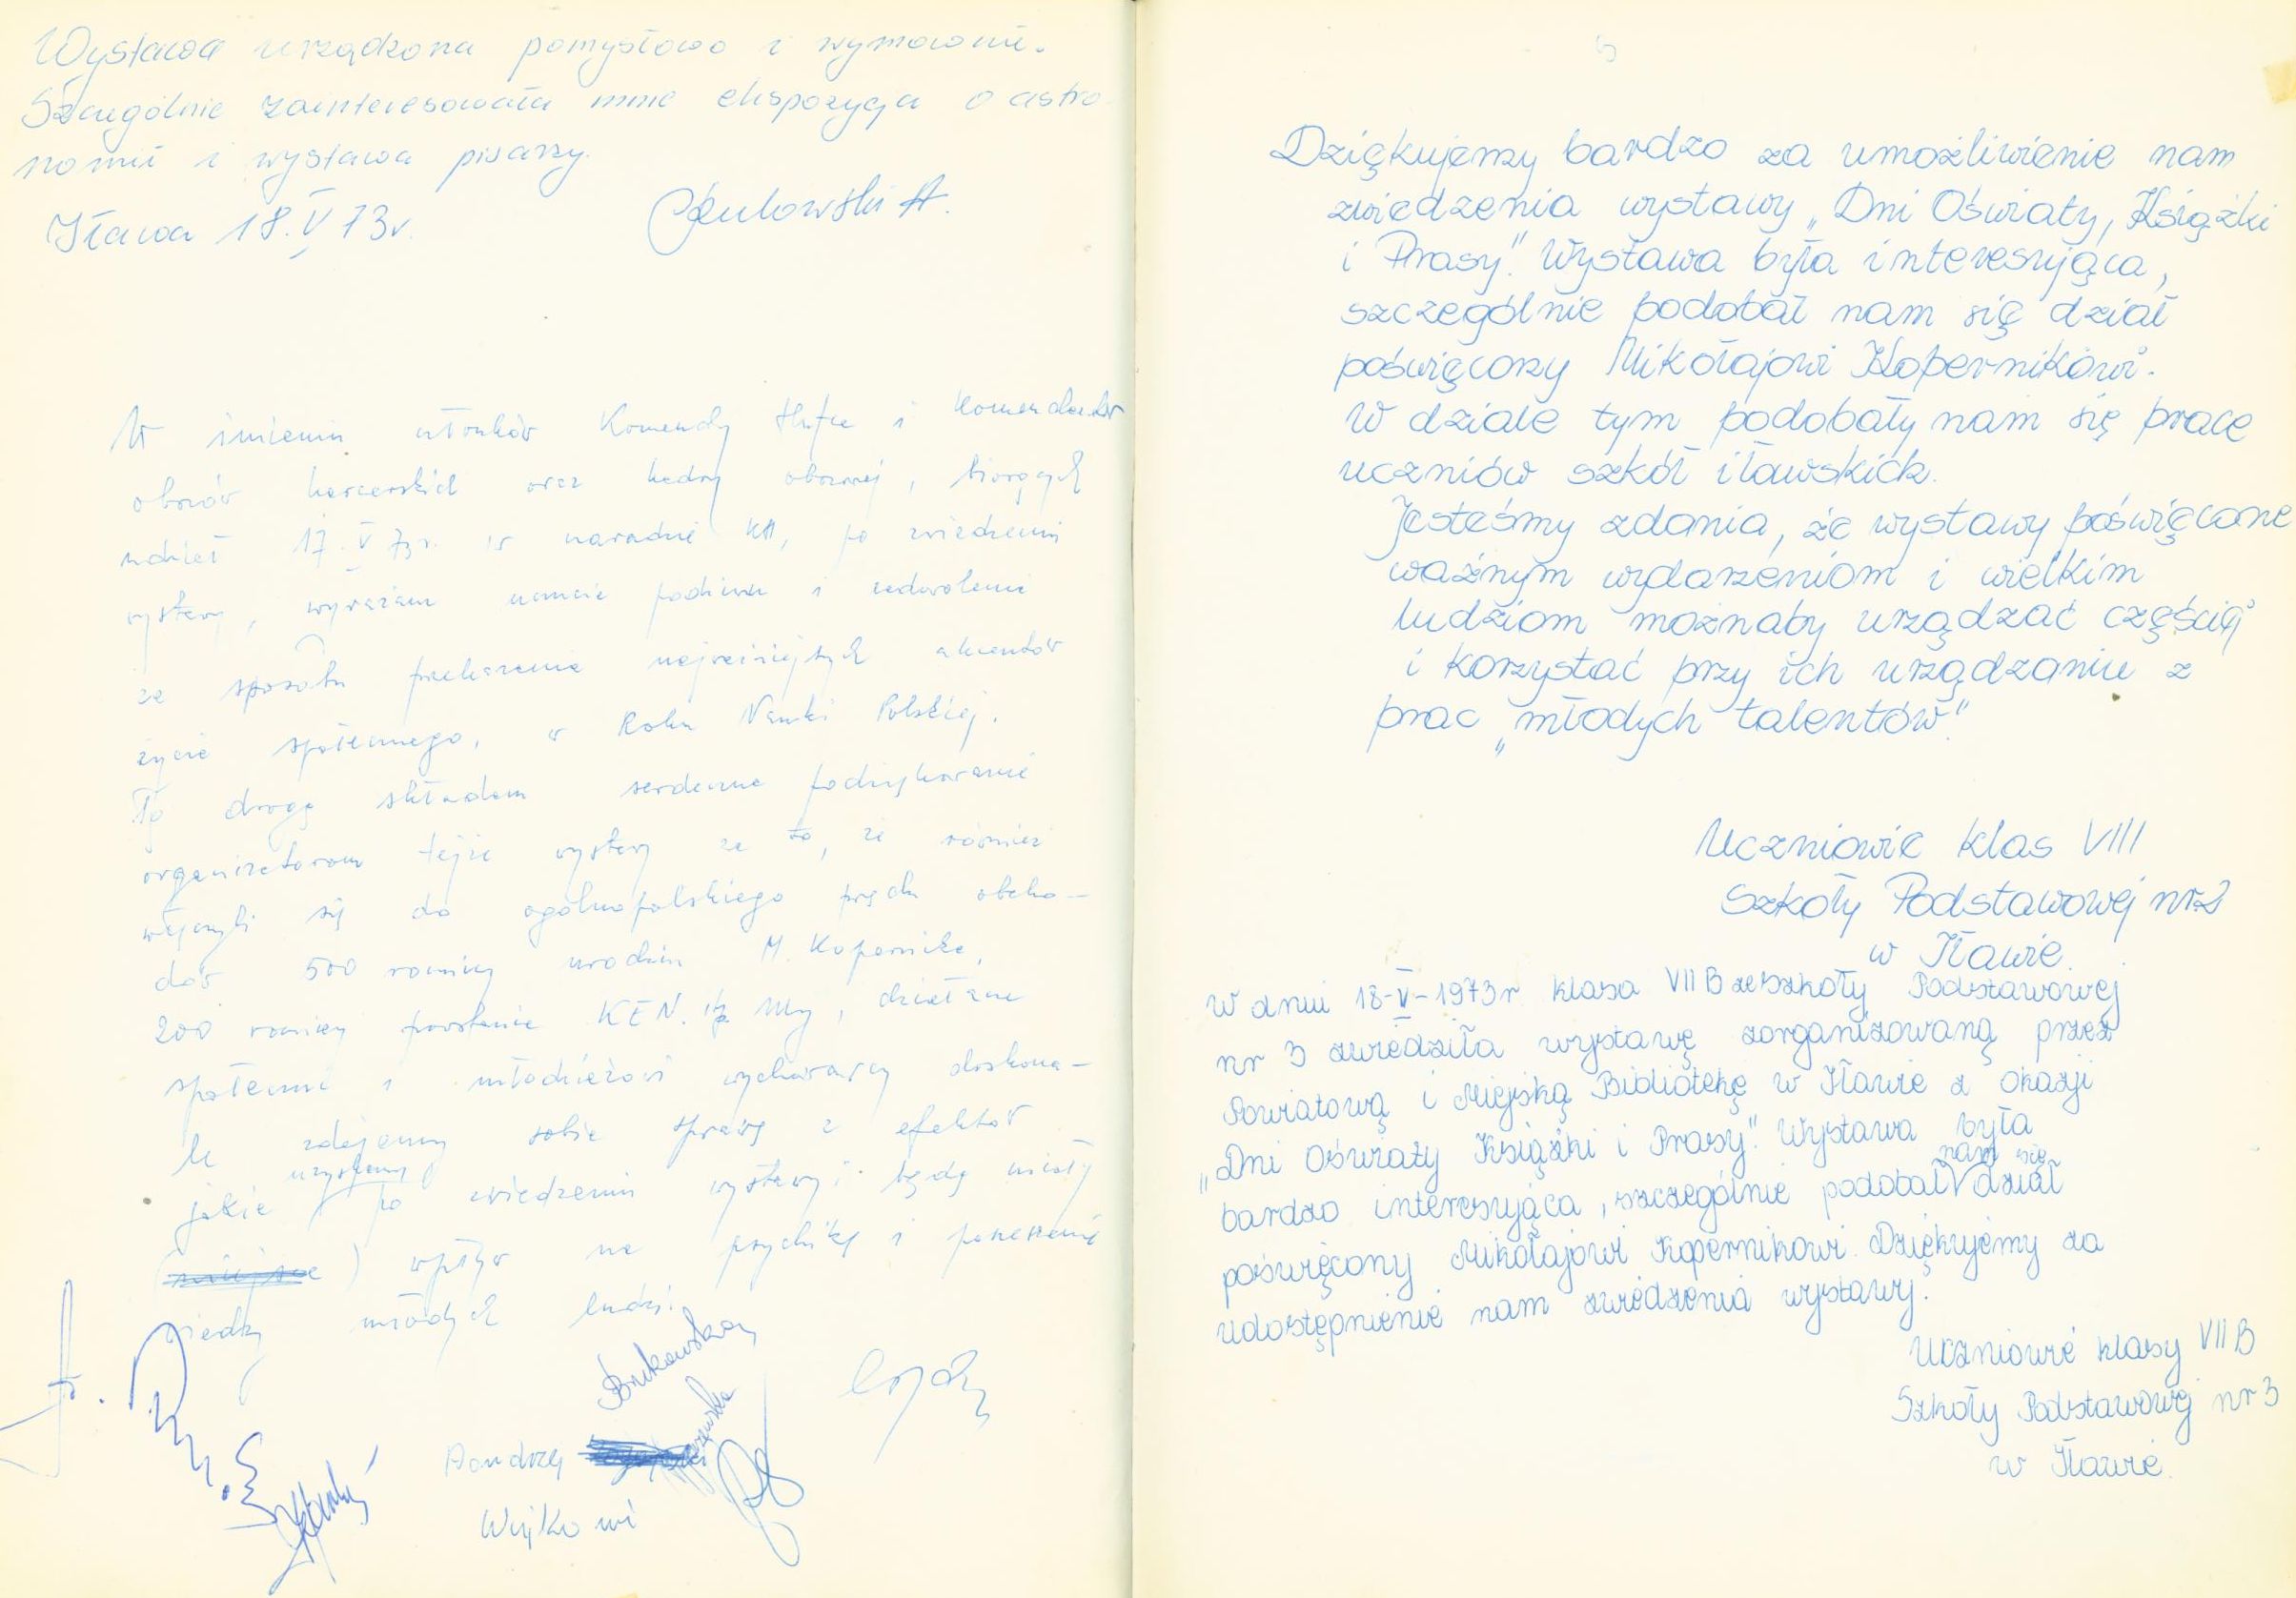 Wystawa urządzona pomysłowo i wymownie.
Szczególnie zainteresowała mnie ekspozycja o astro-
nomii i wystawa pisarzy.
Iława 18.V 73r.
W imieniu członków Komendy Hufca i Komendantów
obozów harcerskich oraz kadry obozowej, biorących
udział 17.V 73r. w naradzie KH, po zwiedzeniu
wystawy, wyrażam uczucie podziwu i zadowolenia
za sposób przekazania najważniejszych akcentów
życia społecznego, w Roku Nauki Polskiej.
Tą drogą składam serdeczne podziękowanie
organizatorom tejże wystawy za to, że również
włączyli się do ogólnopolskiego prądu obcho-
dów 500 rocznicy urodzin M. Kopernika,
200 rocznicy powstania KEN. My, działacze
społeczni i młodzieżowi wychowawcy doskona-
le zdajemy sobie sprawę z efektów
jakie uzyskamy po zwiedzeniu wystawy i będą miały
( ) wpływ na psychikę i poszerzenie
wiedzy młodych ludzi.
Andrzej
5
Dziękujemy bardzo za umożliwienie nam
zwiedzenia wystawy „Dni Oświaty, Książki
i Prasy". Wystawa była interesująca,
szczególnie podobał nam się dział
poświęcony Mikołajowi Kopernikowi.
W dziale tym podobały nam się prace
uczniów szkół iławskich.
Jesteśmy zdania, że wystawy poświęcone
ważnym wydarzeniom i wielkim
ludziom możnaby urządzać częściej
i korzystać przy ich urządzaniu z
prac „młodych talentów".
Uczniowie klas VIII
Szkoły Podstawowej nr 2
w Iławie.
W dniu 18-V-1973r klasa VII B ze szkoły Podstawowej
nr 3 zwiedziła wystawę zorganizowaną przez
Powiatową i Miejską Bibliotekę w Iławie z okazji
„Dni Oświaty Książki i Prasy". Wystawa była
bardzo interesująca, szczególnie podobał nam się dział
poświęcony Mikołajowi Kopernikowi. Dziękujemy za
udostępnienie nam zwiedzenia wystawy.
Uczniowie klasy VII B
Szkoły Podstawowej nr 3
w Iławie.